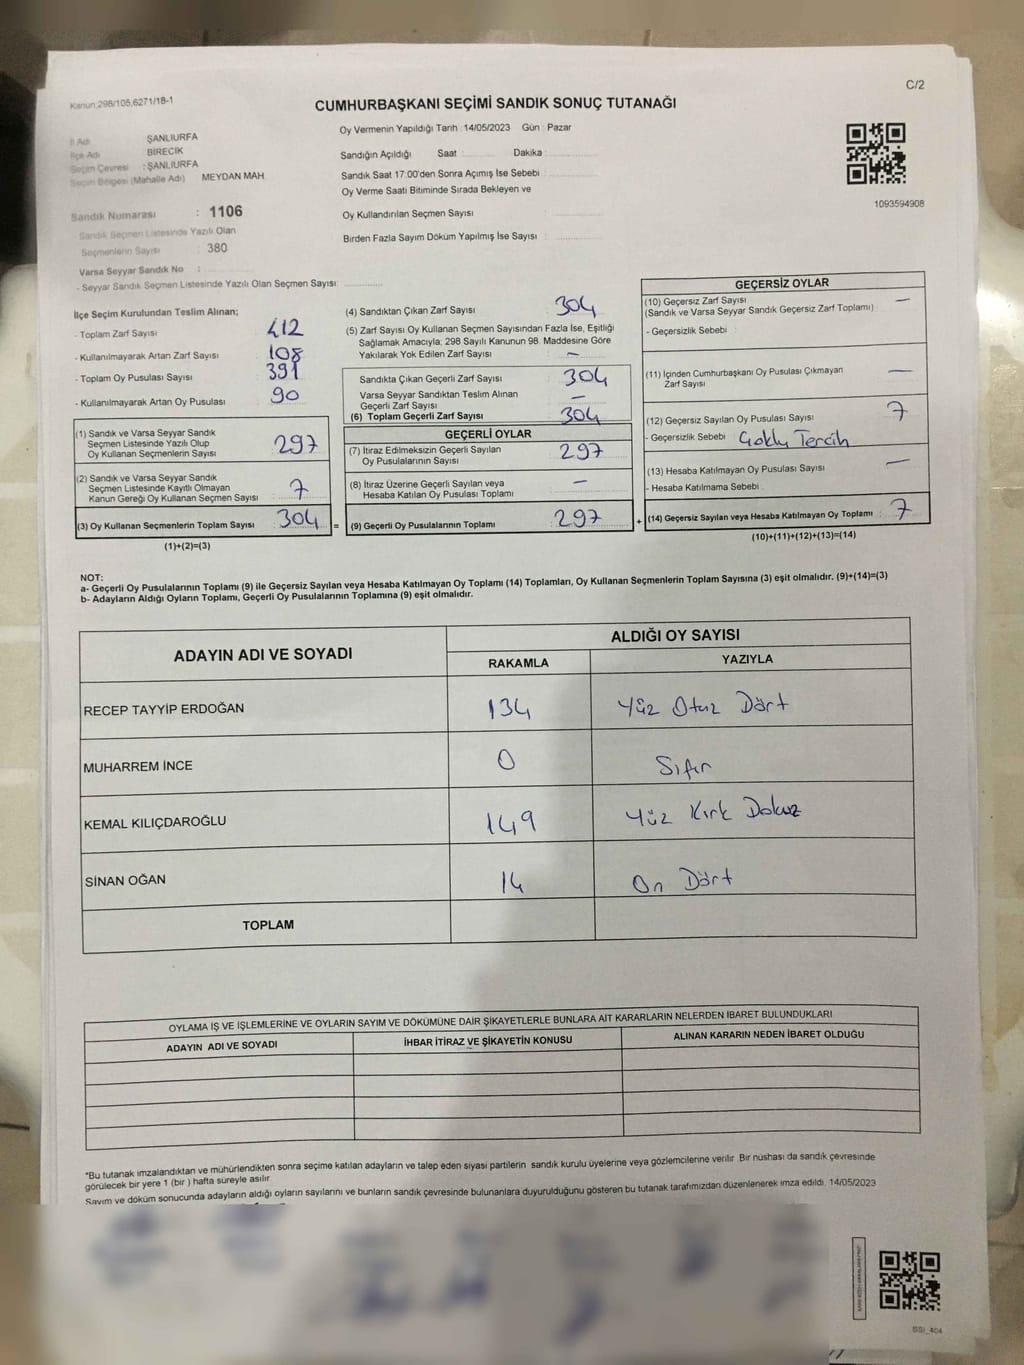 Kanun,298/105,6271/18-1
C/2
CUMHURBAŞKANI SEÇİMİ SANDIK SONUÇ TUTANAĞI
Oy Vermenin Yapıldığı Tarih : 14/05/2023 Gün : Pazar
İl Adı ŞANLIURFA
İlçe Adı BİRECİK
Seçim Çevresi : ŞANLIURFA
Seçim Bölgesi (Mahalle Adı) MEYDAN MAH.
Sandık Numarası : 1106
- Sandık Seçmen Listesinde Yazılı Olan
Seçmenlerin Sayısı : 380
Varsa Seyyar Sandık No :
- Seyyar Sandık Seçmen Listesinde Yazılı Olan Seçmen Sayısı:
Sandığın Açıldığı Saat : Dakika :
Sandık Saat 17:00'den Sonra Açımış İse Sebebi :
Oy Verme Saati Bitiminde Sırada Bekleyen ve
Oy Kullandırılan Seçmen Sayısı :
Birden Fazla Sayım Döküm Yapılmış İse Sayısı :
1093594908
İlçe Seçim Kurulundan Teslim Alınan;
- Toplam Zarf Sayısı : 412
- Kullanılmayarak Artan Zarf Sayısı : 108
- Toplam Oy Pusulası Sayısı : 391
- Kullanılmayarak Artan Oy Pusulası : 90
(1) Sandık ve Varsa Seyyar Sandık
Seçmen Listesinde Yazılı Olup
Oy Kullanan Seçmenlerin Sayısı : 297
(2) Sandık ve Varsa Seyyar Sandık
Seçmen Listesinde Kayıtlı Olmayan
Kanun Gereği Oy Kullanan Seçmen Sayısı : 7
(3) Oy Kullanan Seçmenlerin Toplam Sayısı : 304
(1)+(2)=(3)
=
(4) Sandıktan Çıkan Zarf Sayısı : 304
(5) Zarf Sayısı Oy Kullanan Seçmen Sayısından Fazla İse, Eşitliği
Sağlamak Amacıyla; 298 Sayılı Kanunun 98. Maddesine Göre
Yakılarak Yok Edilen Zarf Sayısı : —
Sandıkta Çıkan Geçerli Zarf Sayısı : 304
Varsa Seyyar Sandıktan Teslim Alınan
Geçerli Zarf Sayısı : —
(6) Toplam Geçerli Zarf Sayısı : 304
GEÇERLİ OYLAR
(7) İtiraz Edilmeksizin Geçerli Sayılan
Oy Pusulalarının Sayısı : 297
(8) İtiraz Üzerine Geçerli Sayılan veya
Hesaba Katılan Oy Pusulası Toplamı : —
(9) Geçerli Oy Pusulalarının Toplamı : 297
+
GEÇERSİZ OYLAR
(10) Geçersiz Zarf Sayısı : —
(Sandık ve Varsa Seyyar Sandık Geçersiz Zarf Toplamı)
- Geçersizlik Sebebi :
(11) İçinden Cumhurbaşkanı Oy Pusulası Çıkmayan —
Zarf Sayısı
(12) Geçersiz Sayılan Oy Pusulası Sayısı : 7
- Geçersizlik Sebebi : Çoklu Tercih
(13) Hesaba Katılmayan Oy Pusulası Sayısı : —
- Hesaba Katılmama Sebebi :
(14) Geçersiz Sayılan veya Hesaba Katılmayan Oy Toplamı : 7
(10)+(11)+(12)+(13)=(14)
NOT:
a- Geçerli Oy Pusulalarının Toplamı (9) ile Geçersiz Sayılan veya Hesaba Katılmayan Oy Toplamı (14) Toplamları, Oy Kullanan Seçmenlerin Toplam Sayısına (3) eşit olmalıdır. (9)+(14)=(3)
b- Adayların Aldığı Oyların Toplamı, Geçerli Oy Pusulalarının Toplamına (9) eşit olmalıdır.
ADAYIN ADI VE SOYADI
ALDIĞI OY SAYISI
RAKAMLA YAZIYLA
RECEP TAYYİP ERDOĞAN 134 Yüz Otuz Dört
MUHARREM İNCE 0 Sıfır
KEMAL KILIÇDAROĞLU 149 Yüz Kırk Dokuz
SİNAN OĞAN 14 On Dört
TOPLAM
OYLAMA İŞ VE İŞLEMLERİNE VE OYLARIN SAYIM VE DÖKÜMÜNE DAİR ŞİKAYETLERLE BUNLARA AİT KARARLARIN NELERDEN İBARET BULUNDUKLARI
ADAYIN ADI VE SOYADI İHBAR İTİRAZ VE ŞİKAYETİN KONUSU ALINAN KARARIN NEDEN İBARET OLDUĞU
*Bu tutanak imzalandıktan ve mühürlendikten sonra seçime katılan adayların ve talep eden siyasi partilerin sandık kurulu üyelerine veya gözlemcilerine verilir. Bir nüshası da sandık çevresinde
görülecek bir yere 1 (bir ) hafta süreyle asılır.
Sayım ve döküm sonucunda adayların aldığı oyların sayılarını ve bunların sandık çevresinde bulunanlara duyurulduğunu gösteren bu tutanak tarafımızdan düzenlenerek imza edildi. 14/05/2023